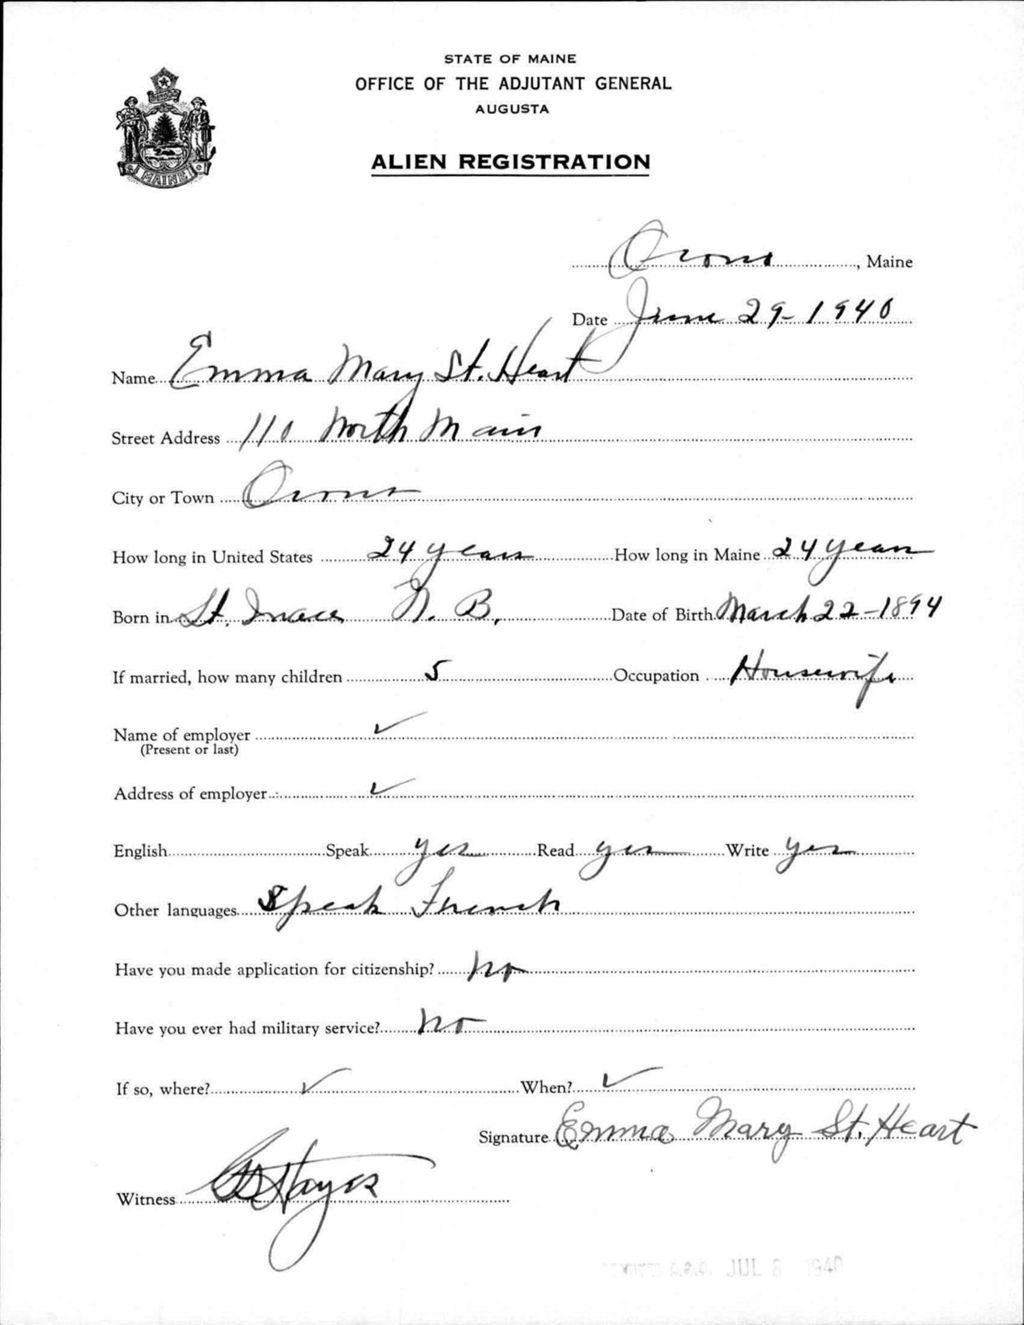 STATE OF MAINE
OFFICE OF THE ADJUTANT GENERAL
AUGUSTA
ALIEN REGISTRATION
MAINE
Orono, Maine
Date June 29-1940
Name Emma Mary St. Heart
Street Address 110 North Main
City or Town Orono
How long in United States 24 years How long in Maine 24 years
Born in St. N. B. Date of Birth March 22-1894
If married, how many children 5 Occupation Housewife
Name of employer ✓
(Present or last)
Address of employer ✓
English Speak yes Read yes Write yes
Other languages Speak French
Have you made application for citizenship? no
Have you ever had military service? no
If so, where? ✓ When? ✓
Signature Emma Mary St. Heart
Witness Hayes
A.G.O. JUL 1940